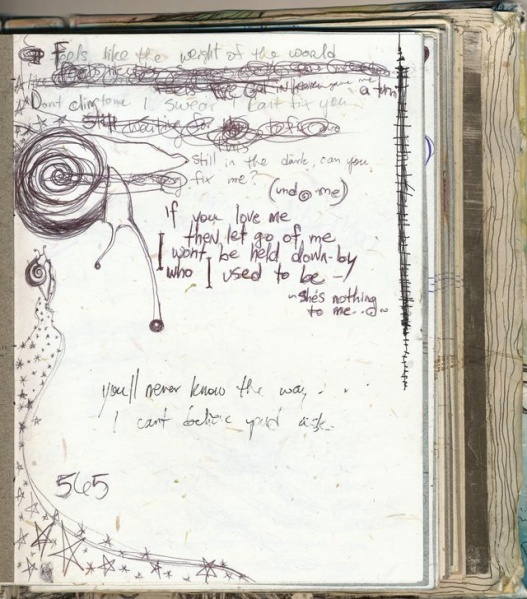 Feels like the weight of the world
a turn
Dont cling to me I swear I cant fix you
still waiting for
this
still in the dark, can you
fix me?
(undo me)
If you love me
then let go of me
I wont be held down by
who I used to be -
~ she's nothing
to me..
you'll never know the way . . .
I cant believe you'd ask..
565